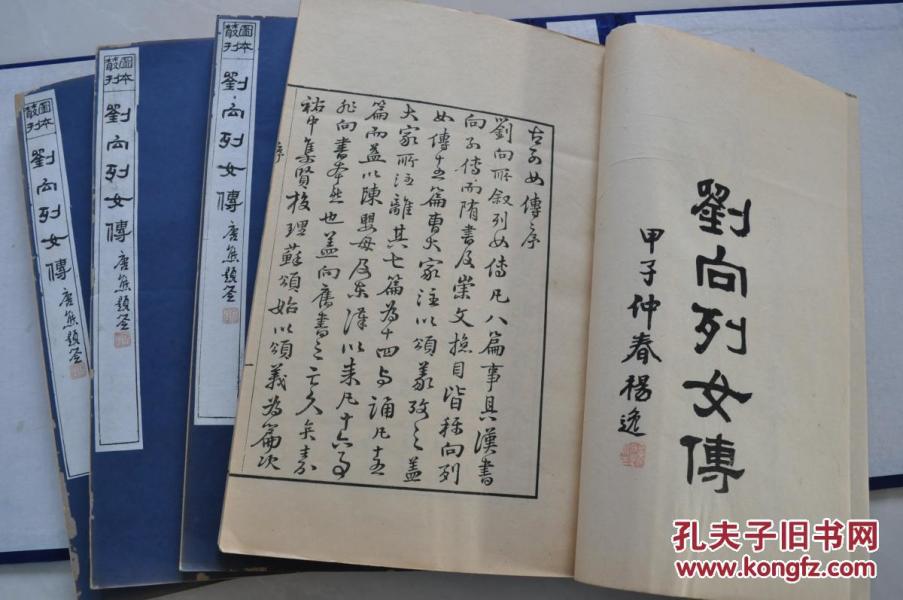 劉向列女傳
甲子仲春楊逸
古列女傳序
劉向所敘列女傳凡八篇事具漢書
向列傳而隋書及崇文摠目皆稱向列
女傳十五篇曹大家注以頌義攷之蓋
大家所注離其七篇為十四与頌凡十五
篇而益以陳嬰母及東漢以來凡十六事
非向書本然也蓋向舊書之亡久矣嘉
祐中集賢校理蘇頌始以頌義為篇次
序
一
圖本叢刊
劉向列女傳
唐熊題簽
圖本叢刊
劉向列女傳
唐熊題簽
圖本叢刊
劉向列女傳
唐熊題簽
孔夫子旧书网
www.kongfz.com